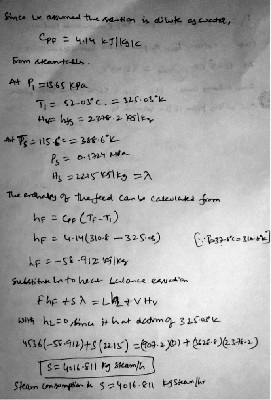 Since we assumed the solution is dilute as water,
CPF = 4.14 kJ/kg K
From steam table.
At P1 = 13.65 kPa
T1 = 52.03°C. = 325.03°K
HV = hV1 = 2378.2 kJ/kg
At TS = 115.6°C = 388.6°K
PS = 0.1724 kPa
HS = 2215 kJ/kg = λ
The enthalpy of the feed can be calculated from
hF = CPF (TF-T1)
hF = 4.14(310.8 - 325.03) [∵ TF=37.8°C = 310.8°K]
hF = -58.912 kJ/kg
Substitute In to heat balance equation
FhF + Sλ = LhL + V HV
with hL = 0, since it hat datum of 325.03°K
4536(-58.912)+S(2215) = (907.2)(0) + (3628.8)(2378.2)
S = 4016.811 kg steam/hr
Steam consumption is S = 4016.811 kg steam/hr